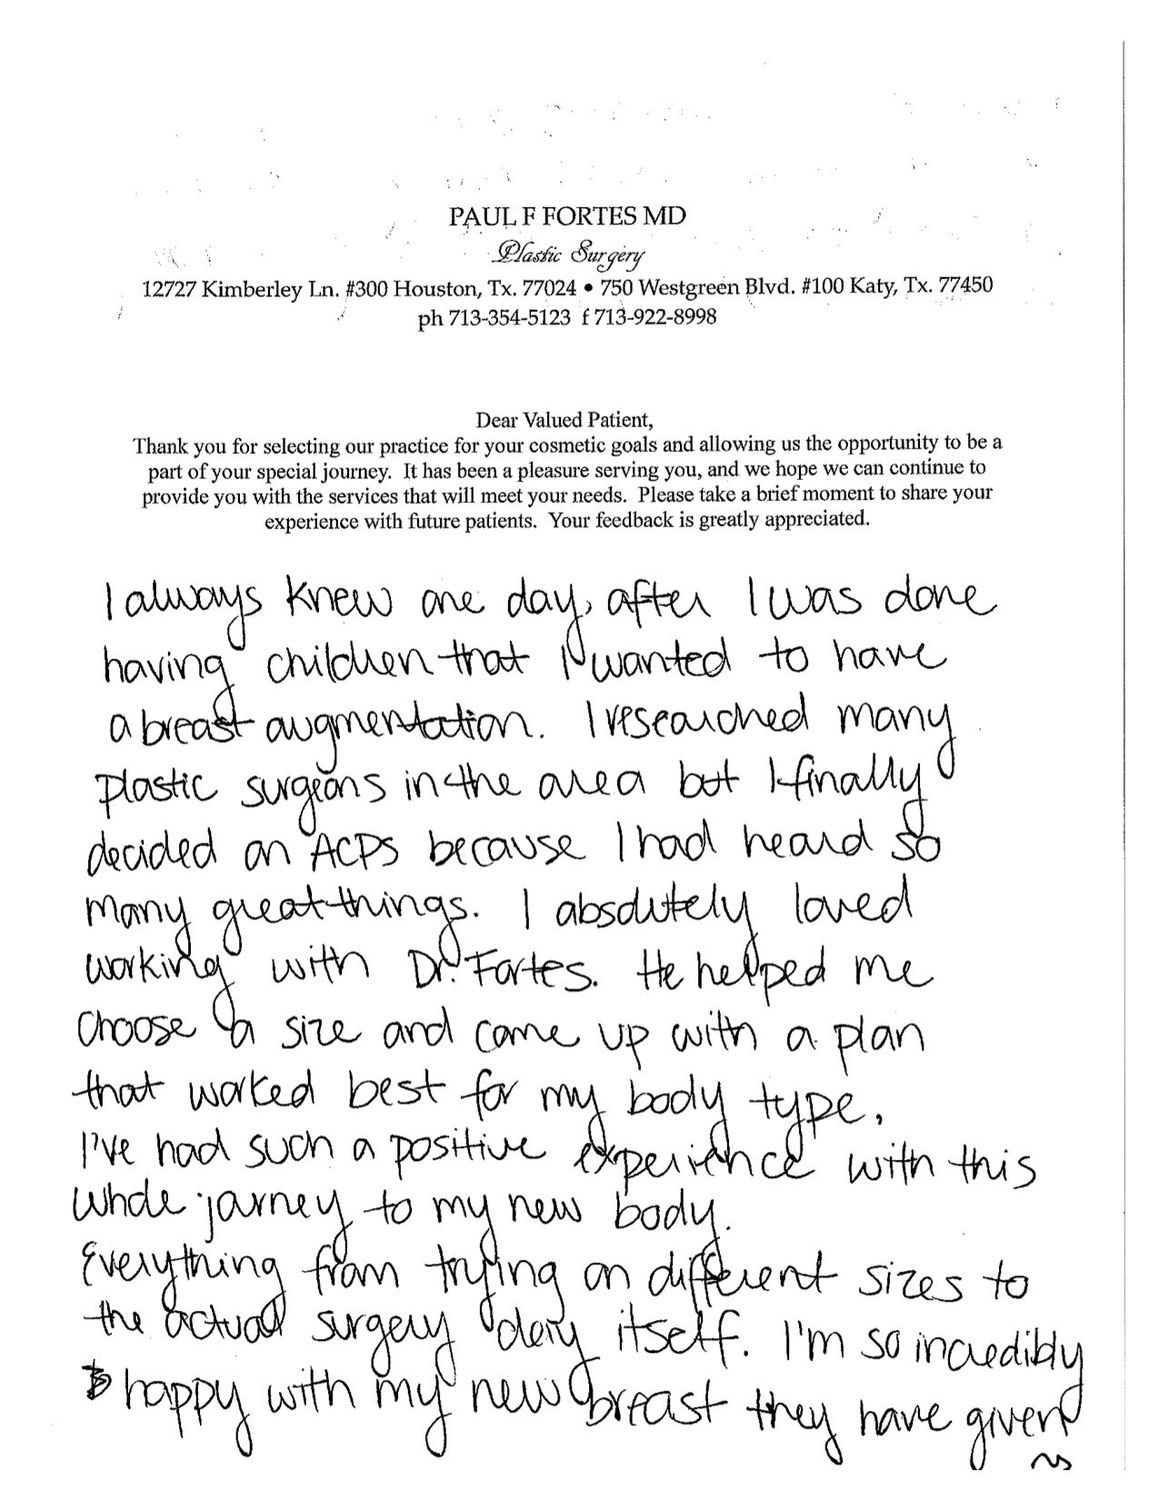 PAUL F FORTES MD
Plastic Surgery
12727 Kimberley Ln. #300 Houston, Tx. 77024 • 750 Westgreen Blvd. #100 Katy, Tx. 77450
ph 713-354-5123 f 713-922-8998
Dear Valued Patient,
Thank you for selecting our practice for your cosmetic goals and allowing us the opportunity to be a
part of your special journey. It has been a pleasure serving you, and we hope we can continue to
provide you with the services that will meet your needs. Please take a brief moment to share your
experience with future patients. Your feedback is greatly appreciated.
I always knew one day, after I was done
having children that I wanted to have
a breast augmentation. I researched many
plastic surgeons in the area but I finally
decided on ACPS because I had heard so
many great things. I absolutely loved
working with Dr. Fortes. He helped me
choose a size and came up with a plan
that worked best for my body type.
I've had such a positive experience with this
whole journey to my new body.
Everything from trying on different sizes to
the actual surgery day itself. I'm so incredibly
happy with my new breast they have given